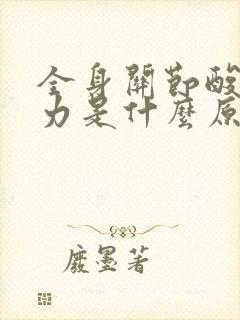 全身關節酸
力是什麼原
廢墨著